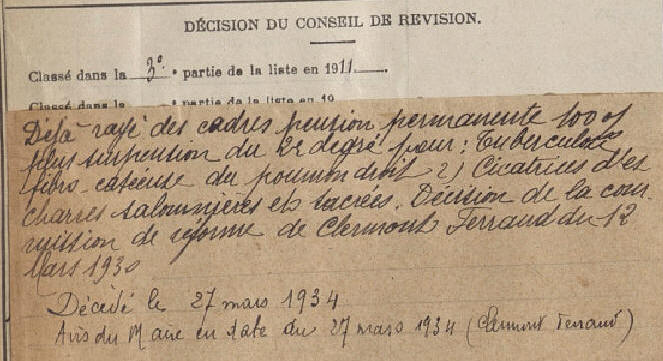 DÉCISION DU CONSEIL DE REVISION.
Classé dans la 3e partie de la liste en 1911
Classé dans la partie de la liste en 19
Déjà rayé des cadres pension permanente 100 %
plus surpension du 2e degré pour : Tuberculose
fibro-caséeuse du poumon droit 2) Cicatrices d'es
charres talonnières et sacrées. Décision de la com
mission de réforme de Clermont Ferrand du 12
Mars 1930
Décédé le 27 mars 1934
Avis du Maire en date du 27 mars 1934 (Clermont Ferrand)